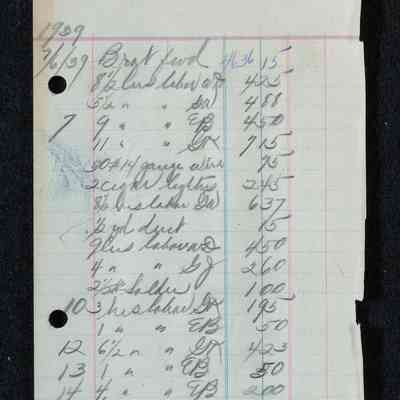 1939
7/6/39 Brot fwd 4636 15
8 1/2 hrs labor 425
5 1/2 " " 488
7 9 " " EB 450
11 " " GK 715
30 # 14 gauge wire 75
2 cigar lighters 245
8 1/2 hrs labor 637
1/2 15
9 hrs labor 450
4 " " GJ 260
2 1/2 # Solder 100
10 3 hrs labor GK 195
1 " " EB 50
12 6 1/2 " " GK 423
13 1 " " EB 50
14 4 " " EB 200